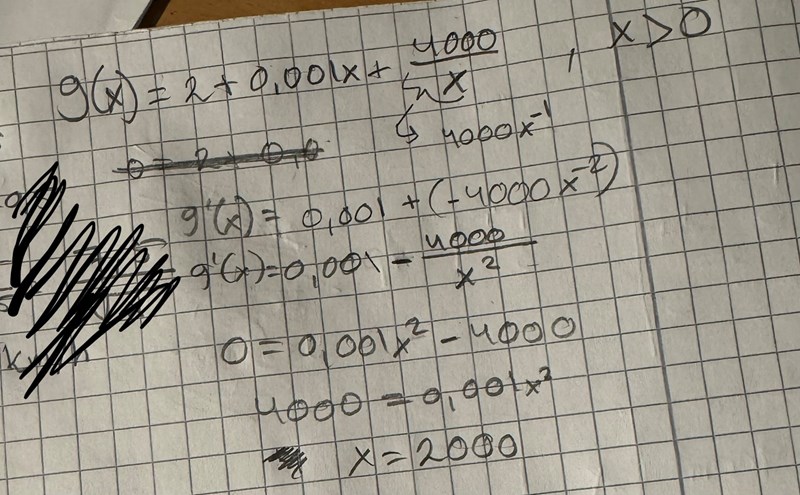 g(x) = 2 + 0,001x + 4000/x , x > 0
↳ 4000x⁻¹
0 = 2 + 0,0
g'(x) = 0,001 + (-4000x⁻²)
g'(x) = 0,001 - 4000/x²
0 = 0,001x² - 4000
4000 = 0,001x²
x = 2000